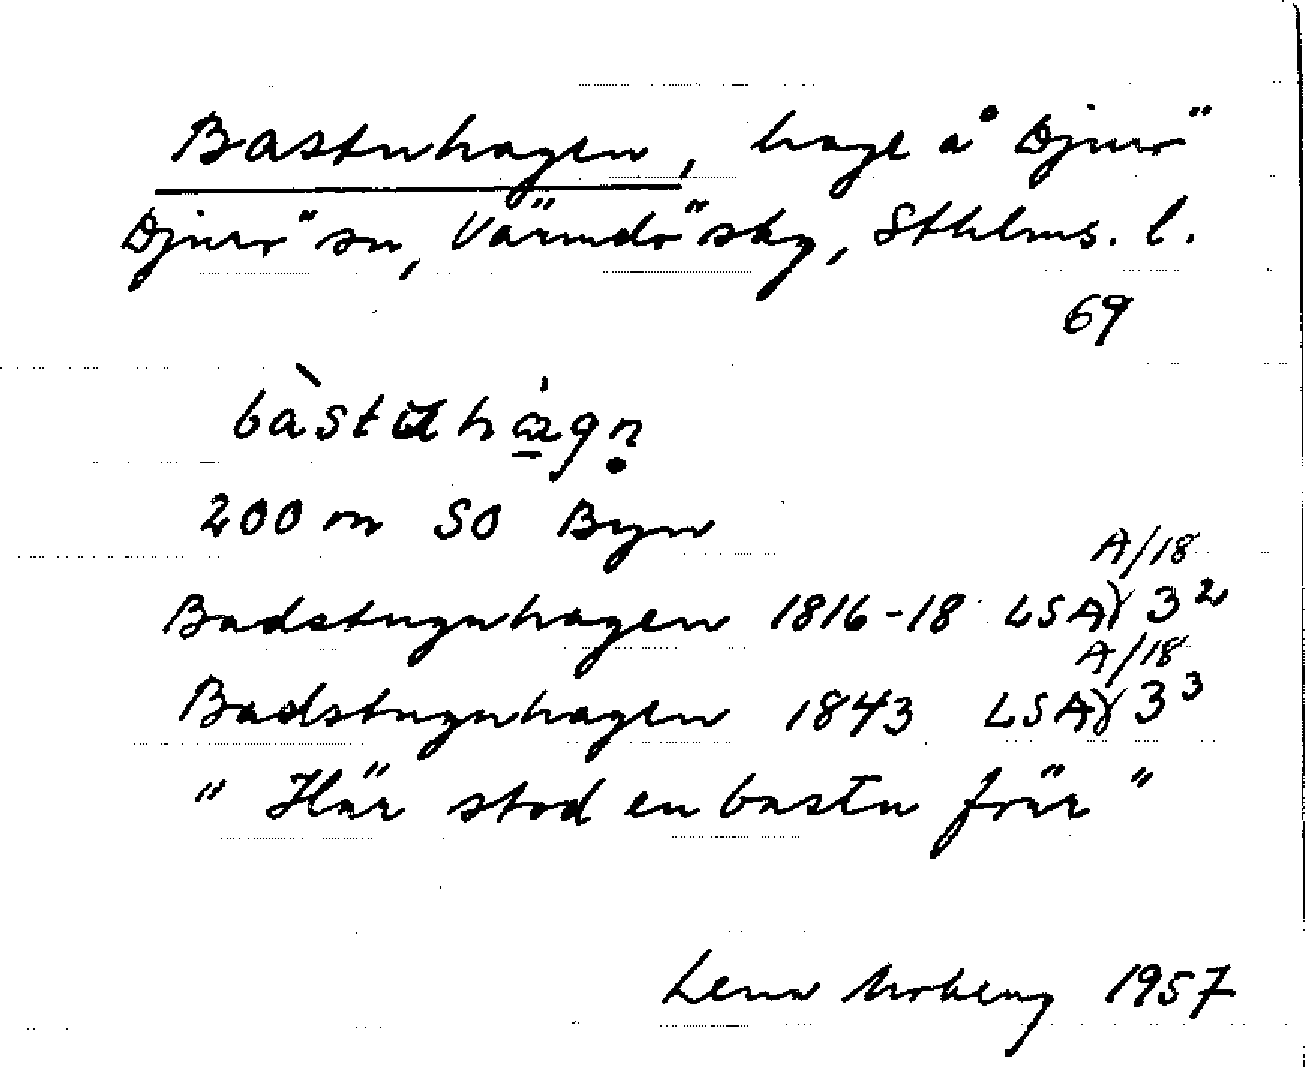 Bastuhagen, hage å Djurö
Djurö sn, Värmdö skg, Sthlms. l.
69
200 m SO Byn
A/18
Badstuguhagen 1816-18 LSA 3²
A/18
Badstuguhagen 1843 LSA 3³
" Här stod en bastu förr "
Lena Moberg 1957